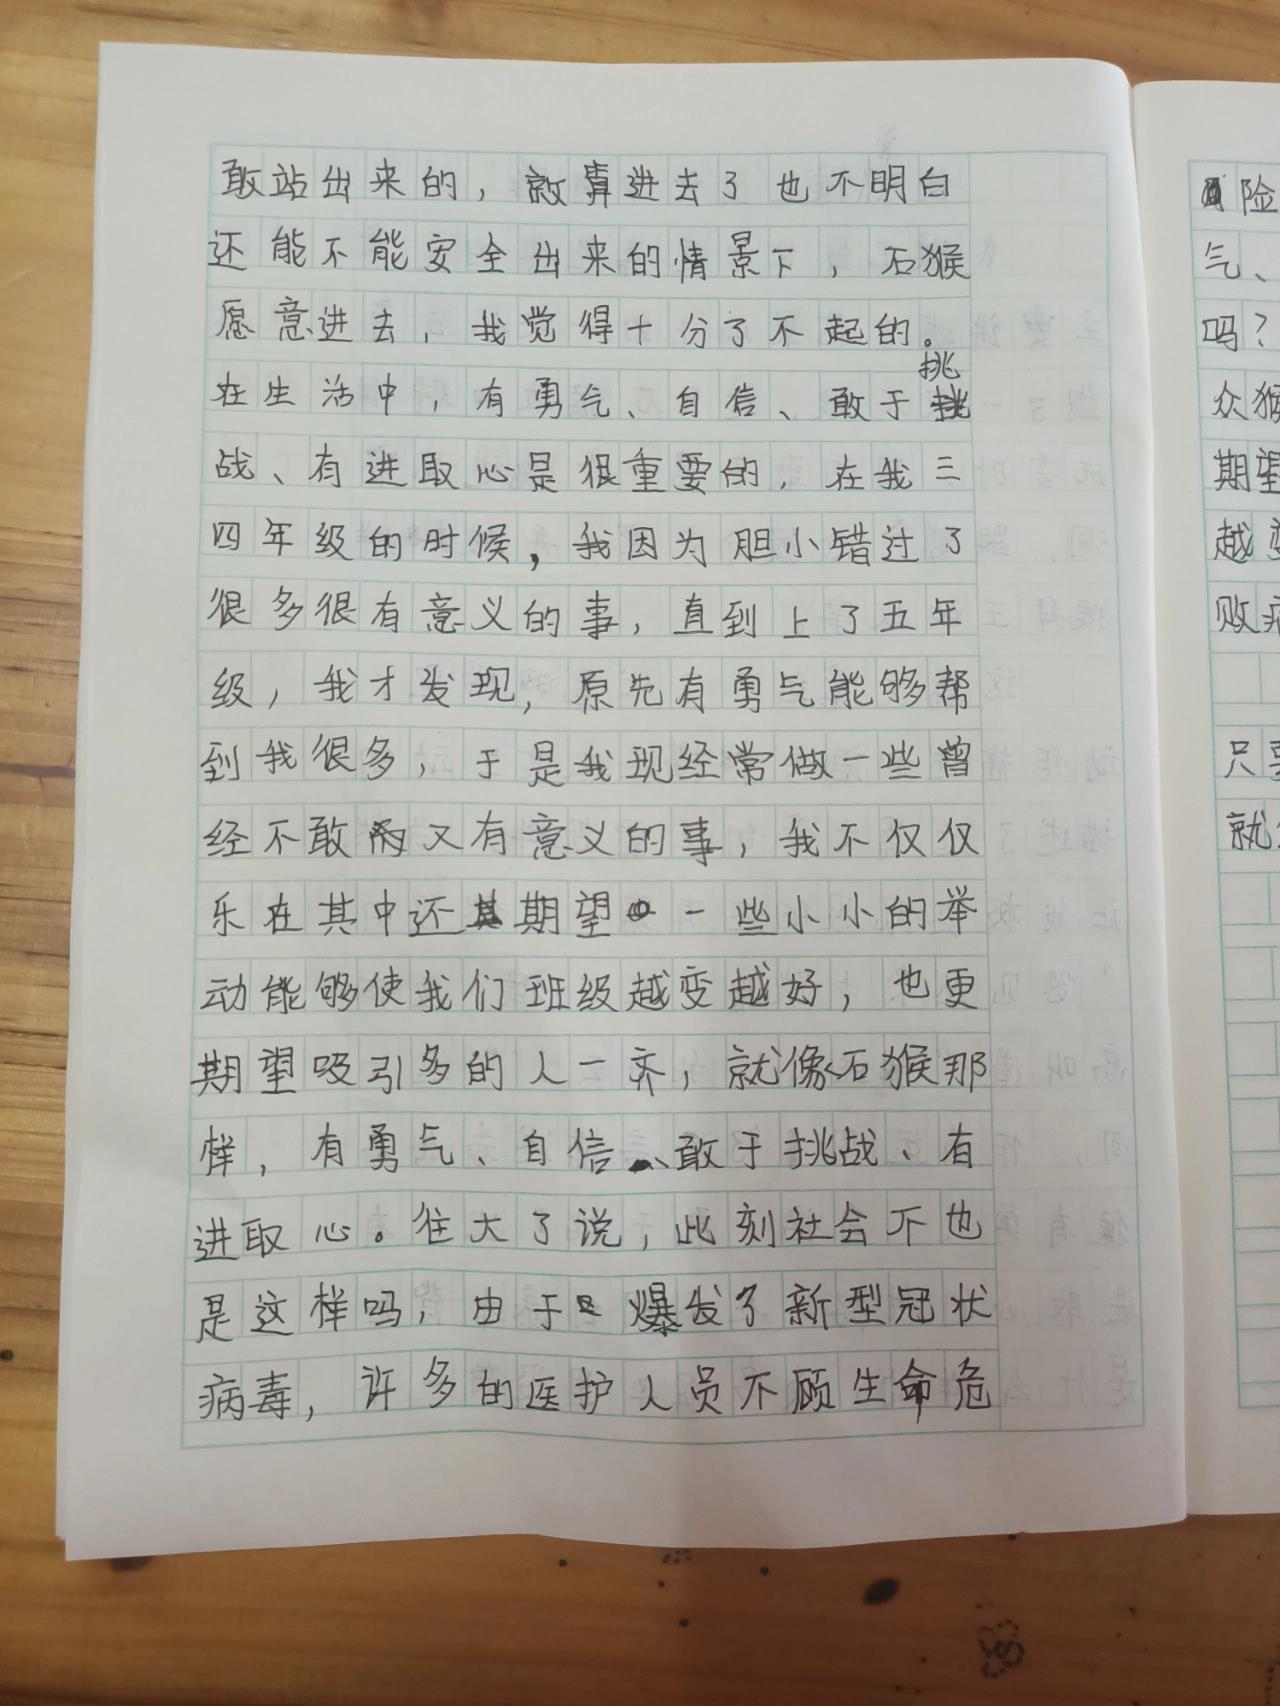 敢站出来的，就算进去了也不明白
还能不能安全出来的情景下，石猴
愿意进去，我觉得十分了不起的。
在生活中，有勇气、自信、敢于挑
战、有进取心是很重要的，在我三
四年级的时候，我因为胆小错过了
很多很有意义的事，直到上了五年
级，我才发现，原先有勇气能够帮
到我很多，于是我现经常做一些曾
经不敢而又有意义的事，我不仅仅
乐在其中还期望一些小小的举
动能够使我们班级越变越好，也更
期望吸引多的人一齐，就像石猴那
样，有勇气、自信、敢于挑战、有
进取心。往大了说，此刻社会不也
是这样吗，由于爆发了新型冠状
病毒，许多的医护人员不顾生命危
险
气、
吗？
众猴
期望
越变
败病
只要
就